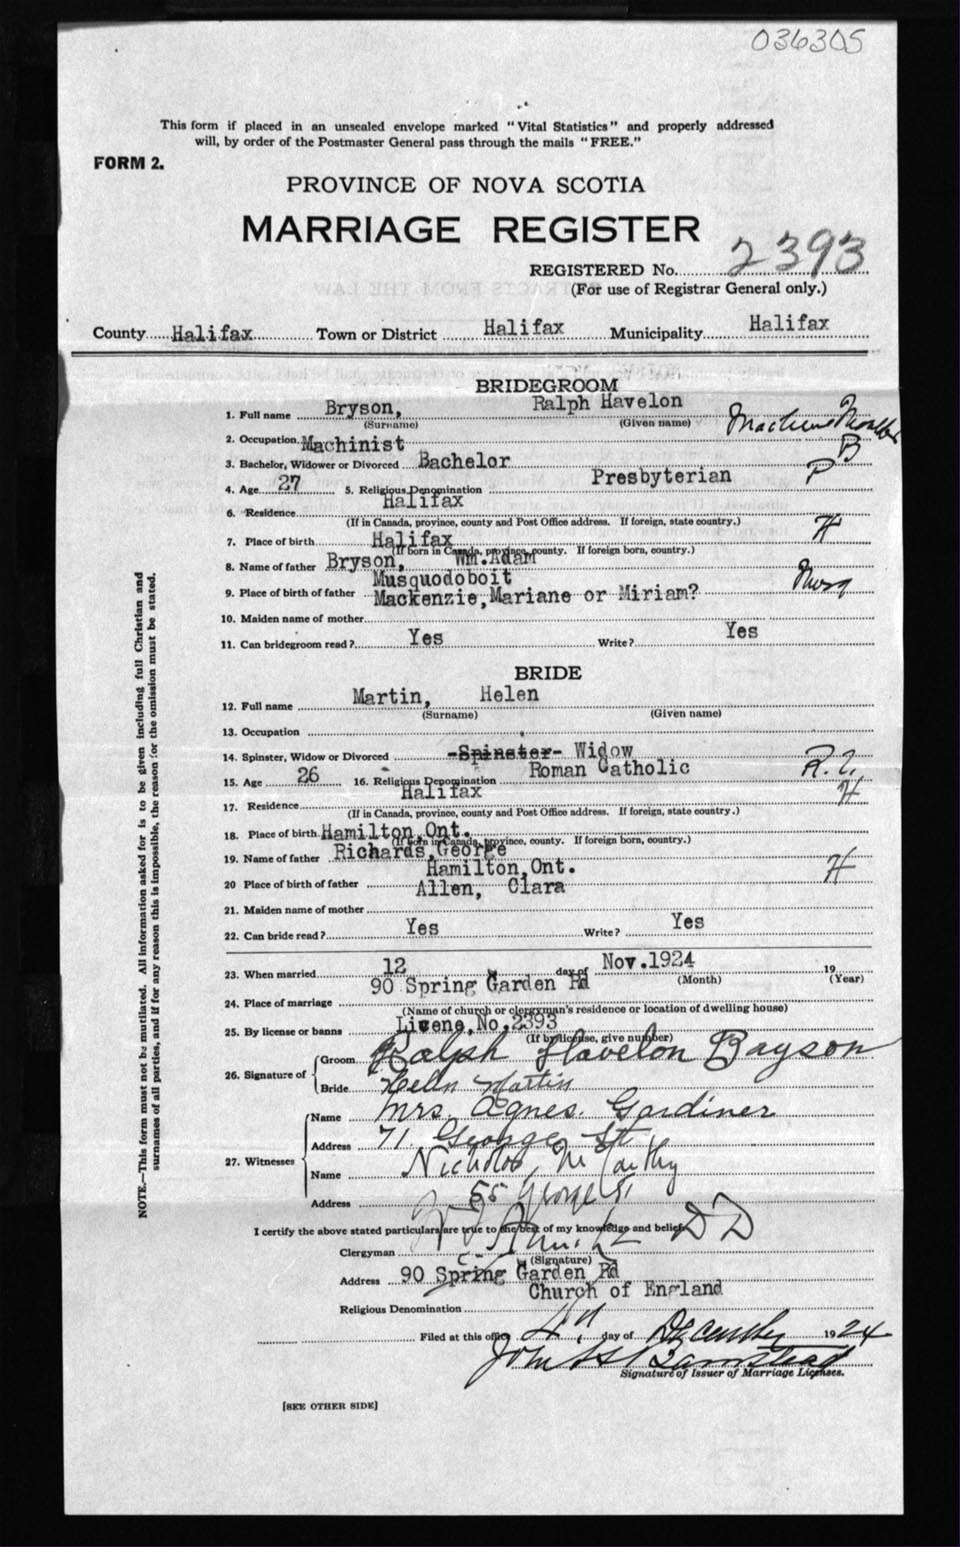 036305
This form if placed in an unsealed envelope marked "Vital Statistics" and properly addressed
will, by order of the Postmaster General pass through the mails "FREE."
FORM 2.
PROVINCE OF NOVA SCOTIA
MARRIAGE REGISTER
REGISTERED No. 2393
(For use of Registrar General only.)
County Halifax Town or District Halifax Municipality Halifax
BRIDEGROOM
1. Full name Bryson, Ralph Havelon
(Surname) (Given name)
2. Occupation Machinist
3. Bachelor, Widower or Divorced Bachelor B
4. Age 27 5. Religious Denomination Presbyterian P
6. Residence Halifax
(If in Canada, province, county and Post Office address. If foreign, state country.)
7. Place of birth Halifax H
(If born in Canada, province, county. If foreign born, country.)
8. Name of father Bryson, Wm.Adam
9. Place of birth of father Musquodoboit Musq
Mackenzie,Mariane or Miriam?
10. Maiden name of mother
11. Can bridegroom read? Yes Write? Yes
BRIDE
12. Full name Martin, Helen
(Surname) (Given name)
13. Occupation
14. Spinster, Widow or Divorced -Spinster- Widow
15. Age 26 16. Religious Denomination Roman Catholic R.C.
17. Residence Halifax H
(If in Canada, province, county and Post Office address. If foreign, state country.)
18. Place of birth Hamilton,Ont.
(If born in Canada, province, county. If foreign born, country.)
19. Name of father Richards,George
20 Place of birth of father Hamilton,Ont. H
Allen, Clara
21. Maiden name of mother
22. Can bride read? Yes Write? Yes
23. When married 12 day of Nov.1924 19
(Month) (Year)
24. Place of marriage 90 Spring Garden Rd
(Name of church or clergyman's residence or location of dwelling house)
25. By license or banns Licene,No,2393
(If by license, give number)
26. Signature of Groom Ralph Havelon Bayson
Bride Helen Martin
27. Witnesses Name Mrs. Agnes. Gardiner
Address 71. George St
Name Nicholas McCarthy
Address 55 George St
I certify the above stated particulars are true to the best of my knowledge and belief. DD
Clergyman
(Signature)
Address 90 Spring Garden Rd
Religious Denomination Church of England
Filed at this office 4" day of December 1924
Signature of Issuer of Marriage Licenses.
[SEE OTHER SIDE]
NOTE.—This form must not be mutilated. All information asked for is to be given including full Christian and
surnames of all parties, and if for any reason this is impossible, the reason for the omission must be stated.